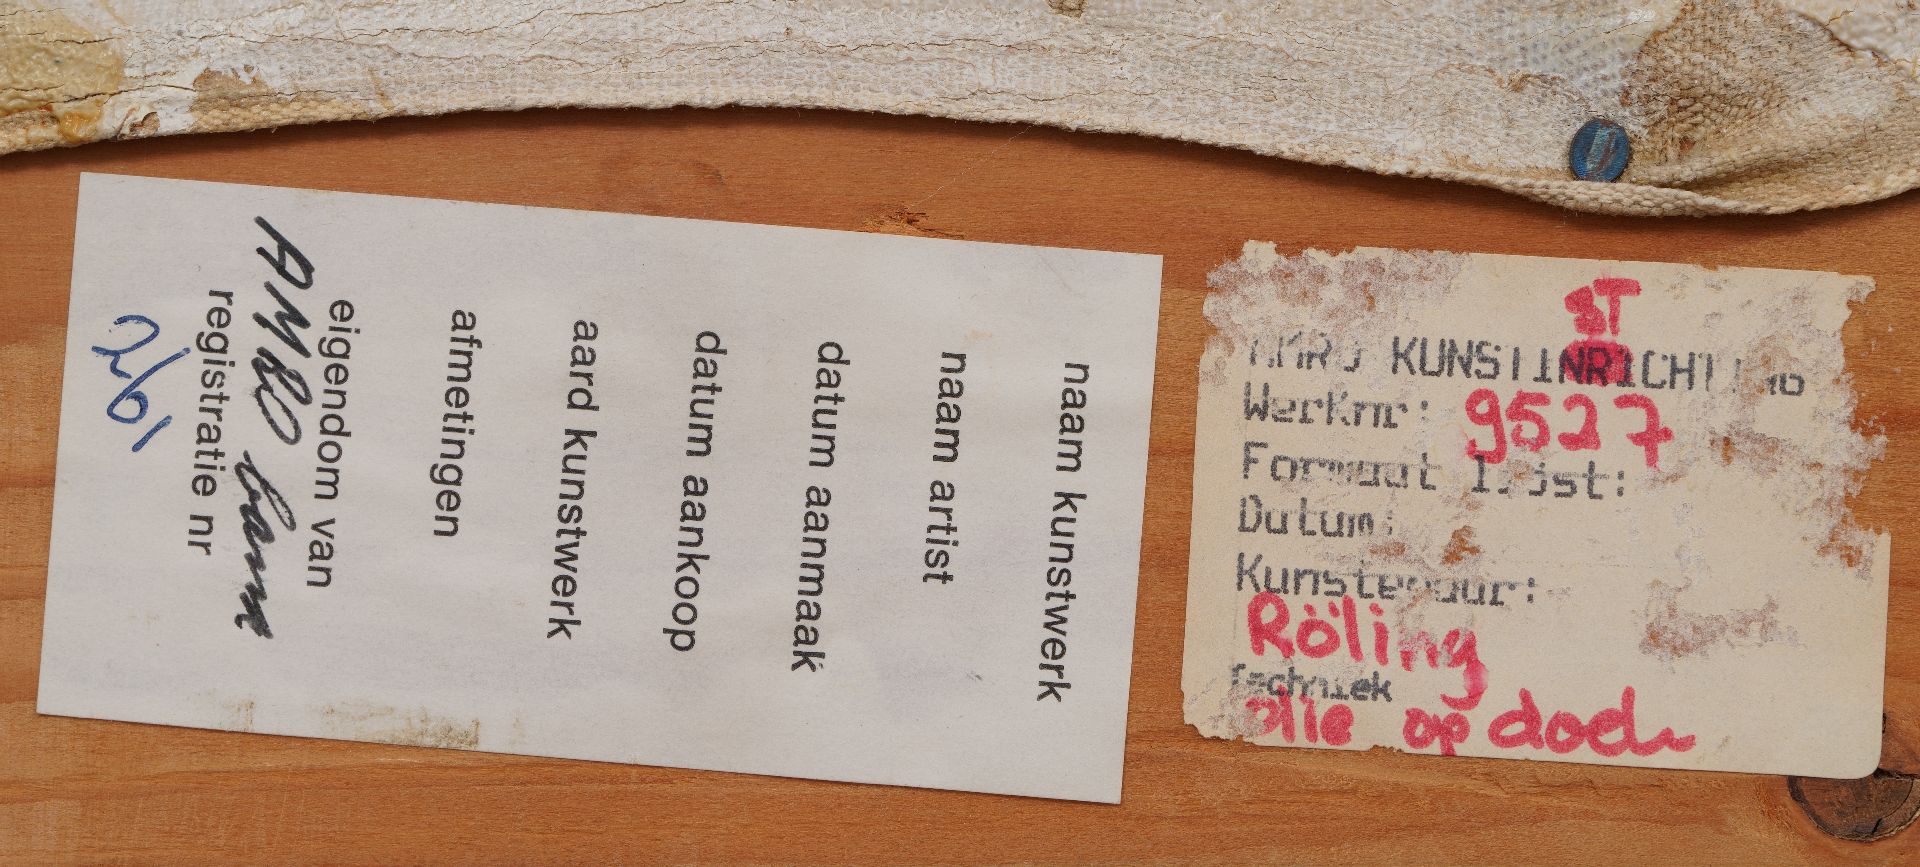 naam kunstwerk
naam artist
datum aanmaak
datum aankoop
aard kunstwerk
afmetingen
eigendom van
AMRO bank
registratie nr
ST
KUNSTINRICHTING
Werknr: 9527
Formaat lijst:
Datum:
Kunstenaar:
Röling
Techniek
olie op doek